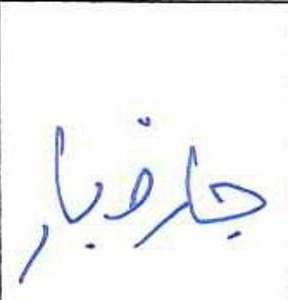 جارفبار